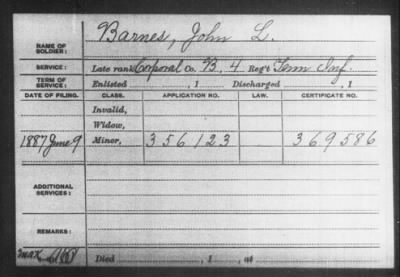 NAME OF SOLDIER: Barnes, John L.
SERVICE: Late rank Corporal Co. B, 4 Reg't Tenn Inf.
TERM OF SERVICE: Enlisted , 1 Discharged , 1
DATE OF FILING. CLASS. APPLICATION NO. LAW. CERTIFICATE NO.
Invalid,
Widow,
1887 June 9 Minor, 356123 369586
ADDITIONAL SERVICES:
REMARKS:
Died , 1 , at